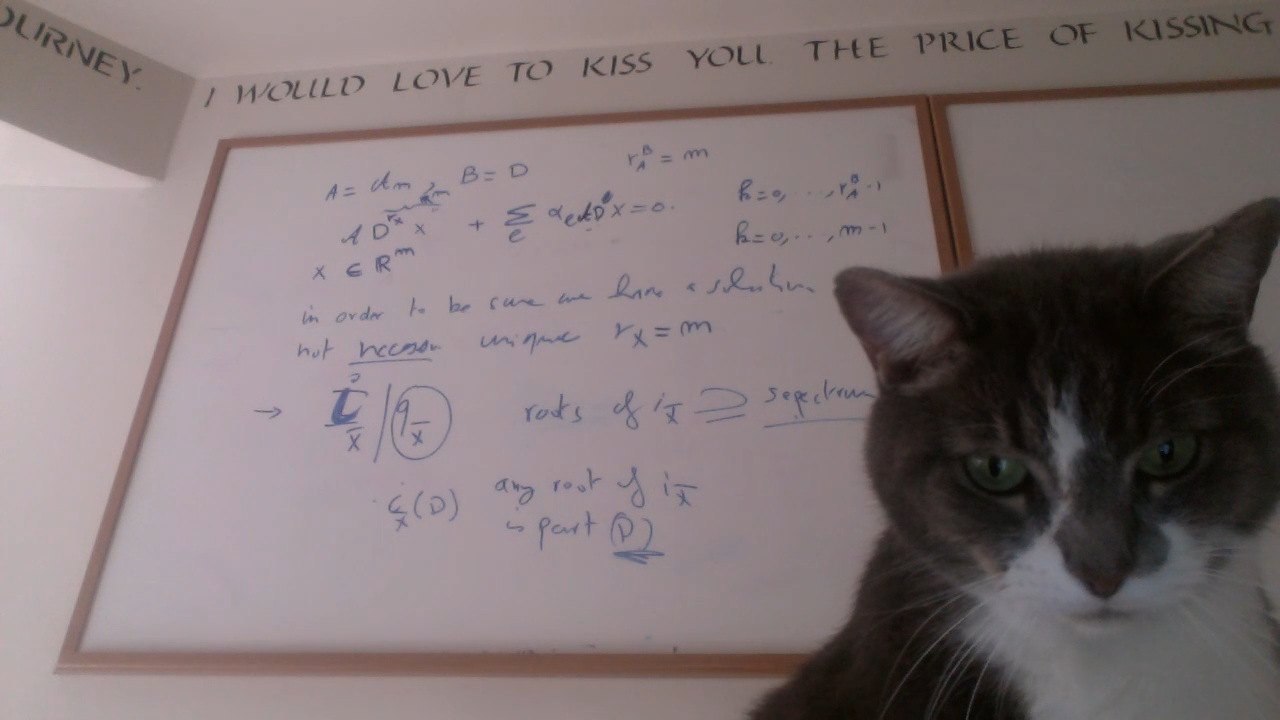 OURNEY.
I WOULD LOVE TO KISS YOU. THE PRICE OF KISSING
A = B = D r_A^B = m
A D^{r_x} x + Σ_e α_e A D^e x = 0. k=0, ..., r_A^B-1
x ∈ ℝ^m k=0, ..., m-1
in order to be sure we have a solution
not unique r_x = m
→ / q_x̄ roots of i_x̄ ⊇
(D) any root of i_x̄
is part (D)